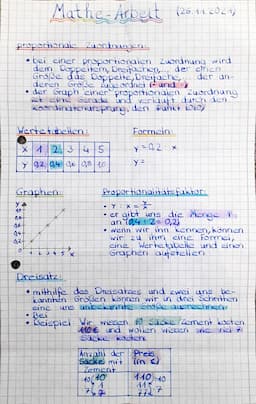 Mathe-Arbeit (26.11.2021)
proportionale Zuordnungen:
• bei einer proportionalen Zuordnung wird
dem Doppelten, Dreifachen, ... der einen
Größe das Doppelte, Dreifache, ... der an-
deren Größe zugeordnet
• der Graph einer proportionalen Zuordnung
ist eine Gerade und verläuft durch den
Koordinatenursprung, den Punkt (0|0)
Wertetabellen: Formeln:
x 1 2 3 4 5 y = 0,2 · x
y 0,2 0,4 0,6 0,8 1,0 y =
Graphen: Proportionalitätsfaktor:
• er gibt uns die Menge
an (0,4 : 2 = 0,2)
• wenn wir ihn kennen, können
wir zu ihm eine Formel,
eine Wertetabelle und einen
Graphen aufstellen
Dreisatz:
• mithilfe des Dreisatzes und zwei uns be-
kannten Größen können wir in drei Schritten
eine uns unbekannte Größe ausrechnen
• Bei
• Beispiel: Wir wissen 10 Säcke Zement kosten
110€ und wollen wissen wie viel 7
Säcke kosten.
Anzahl der Preis
Säcke mit (in €)
Zement
10 110
1 11
7 77